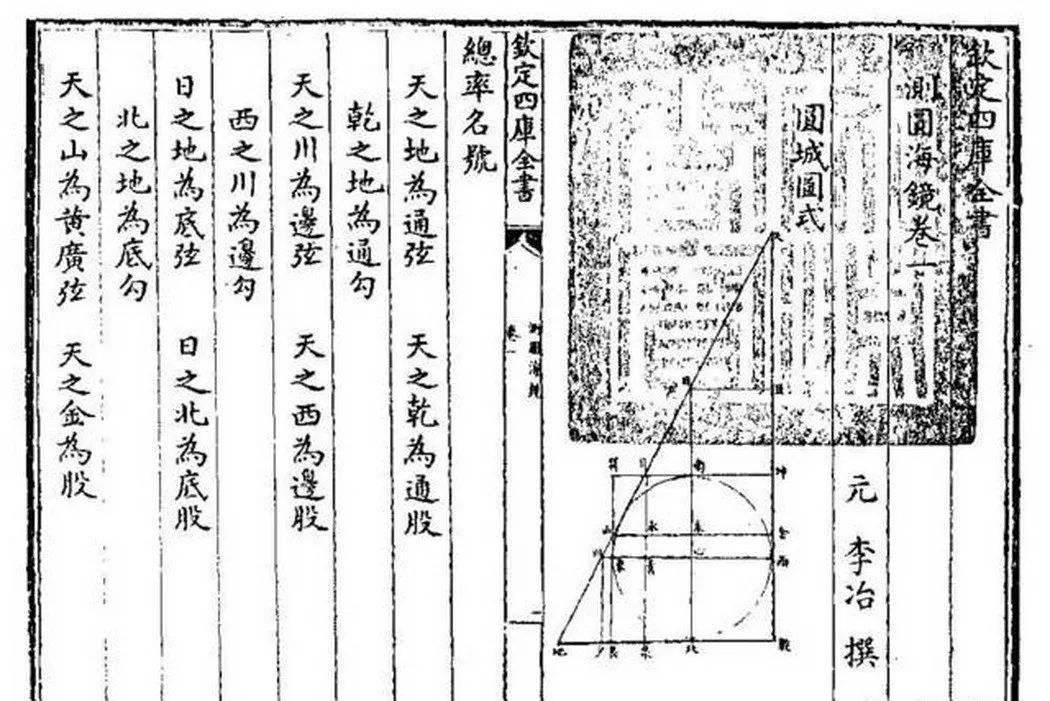 欽定四庫全書
測圓海鏡卷一
元 李冶 撰
圓城圖式
天
日
旦
巽
月
南
坤
山
金
川
東
心
西
地
夕
艮
泉
北
乾
欽定四庫全書
測圓海鏡
卷一
總率名號
天之地為通弦 天之乾為通股
乾之地為通勾
天之川為邊弦 天之西為邊股
西之川為邊勾
日之地為底弦 日之北為底股
北之地為底勾
天之山為黄廣弦 天之金為股